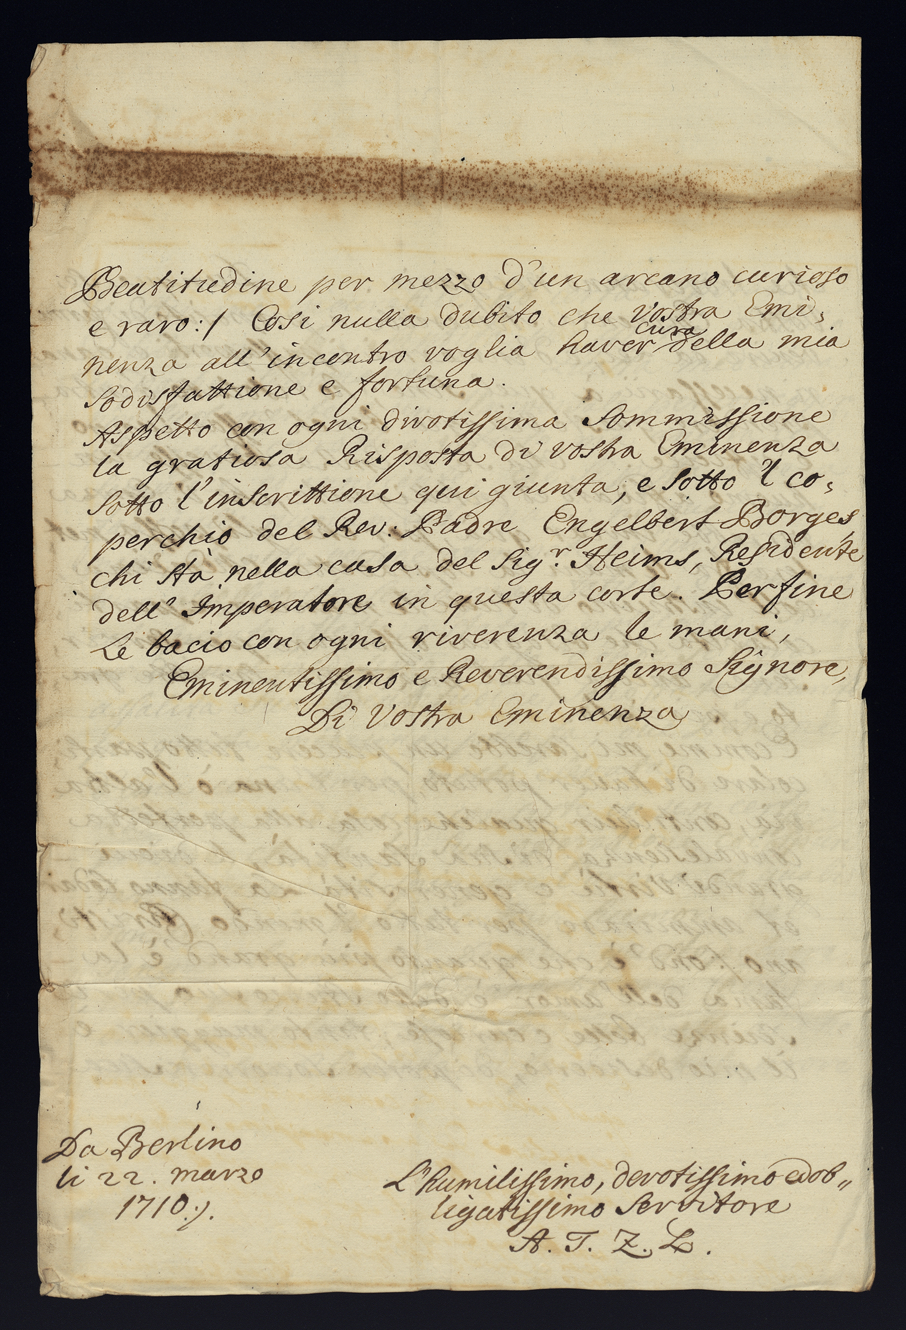 Beatitudine per mezzo d'un arcano curioso
e raro:/ Così nulla dubito che Vostra Emi,
nenza all'incontro voglia haver cura della mia
sodisfattione e fortuna.
Aspetto con ogni divotissima sommissione
la gratiosa Risposta di Vostra Eminenza
sotto l'inscrittione qui giunta, e sotto 'l co,
perchio del Rev: Padre Engelbert Borges
chi stà nella casa del Sig.r Heims, Residente
dell' Imperatore in questa corte. Per fine
Le bacio con ogni riverenza le mani,
Eminentissimo e Reverendissimo Signore,
Di Vostra Eminenza
Da Berlino
li 22. marzo
1710:/.
L'humilissimo, devotissimo ed ob,,
ligatissimo Servitore
A. T. Z. L.